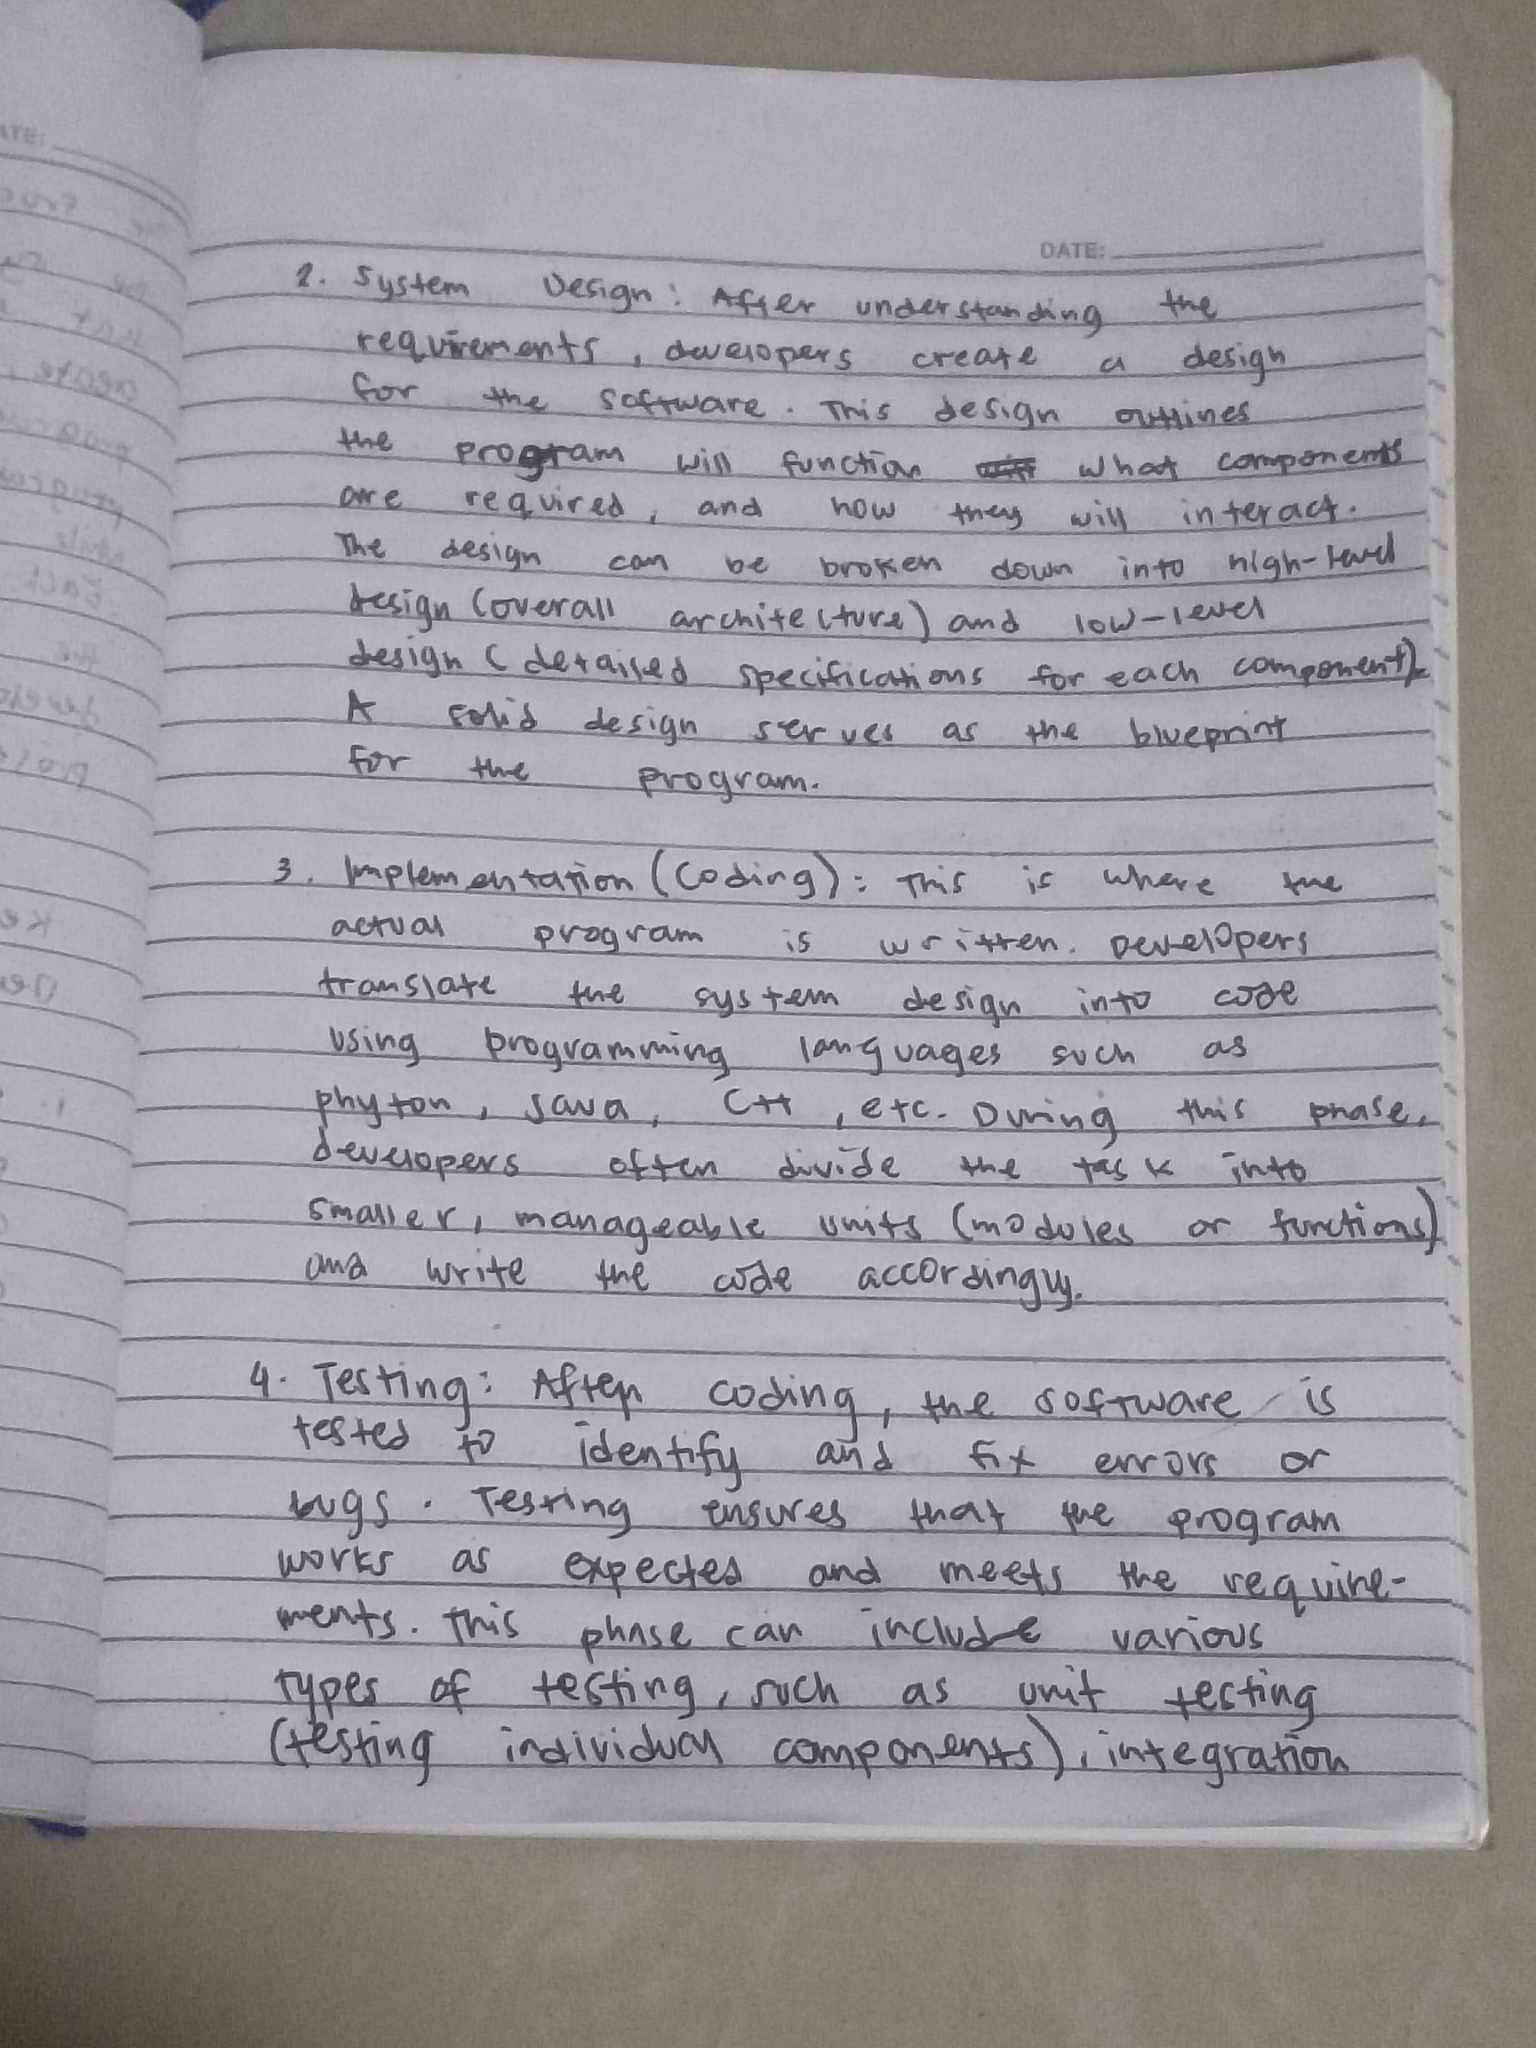 DATE:
2. System Design: After understanding the
requirements, developers create a design
for the software. This design outlines
the program will function what components
are required, and how they will interact.
The design can be broken down into high-level
design (overall architecture) and low-level
design (detailed specifications for each component).
A solid design serves as the blueprint
for the program.
3. Implementation (Coding): This is where the
actual program is written. Developers
translate the system design into code
using programming languages such as
phyton, Java, C++, etc. During this phase,
developers often divide the task into
smaller, manageable units (modules or functions)
and write the code accordingly.
4. Testing: After coding, the software is
tested to identify and fix errors or
bugs. Testing ensures that the program
works as expected and meets the require-
ments. This phase can include various
types of testing, such as unit testing
(testing individual components), integration